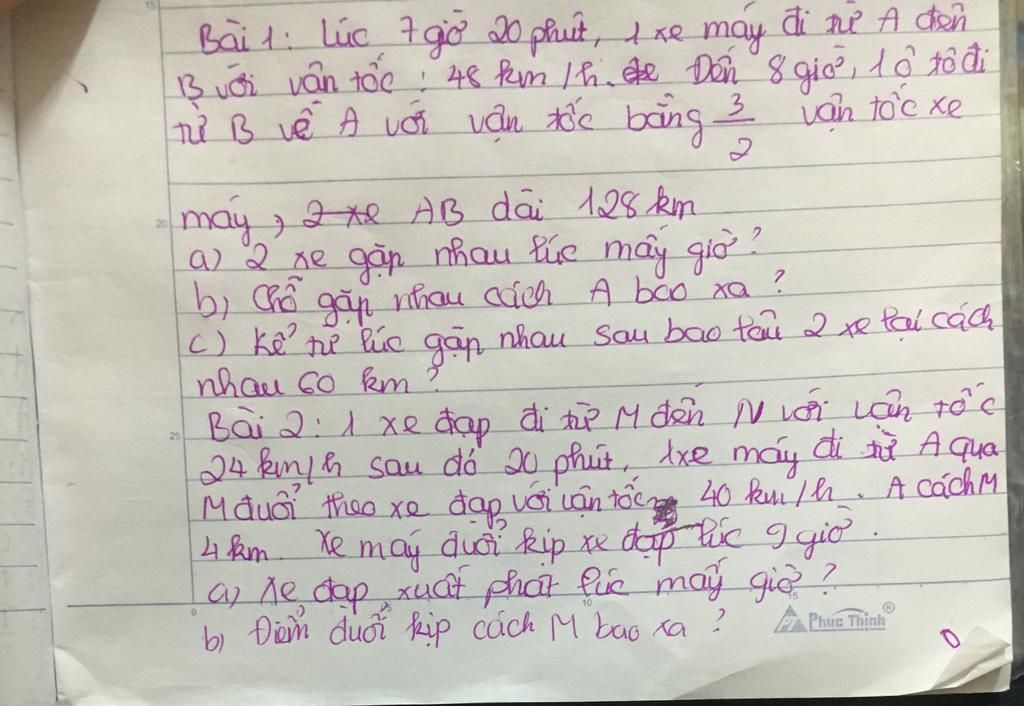 Bài 1: Lúc 7 giờ 20 phút, 1 xe máy đi từ A đến
B với vận tốc : 48 km/h. Đến 8 giờ, 1 ô tô đi
từ B về A với vận tốc bằng 3/2 vận tốc xe
máy, 2 xe AB dài 128 km
a) 2 xe gặp nhau lúc mấy giờ?
b) Chỗ gặp nhau cách A bao xa?
c) Kể từ lúc gặp nhau sau bao lâu 2 xe lại cách
nhau 60 km?
Bài 2: 1 xe đạp đi từ M đến N với vận tốc
24 km/h sau đó 20 phút, 1 xe máy đi từ A qua
M đuổi theo xe đạp với vận tốc 40 km/h. A cách M
4 km. Xe máy đuổi kịp xe đạp lúc 9 giờ.
a) Xe đạp xuất phát lúc mấy giờ?
b) Điểm đuổi kịp cách M bao xa?
Phuc Thinh®